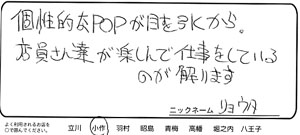 個性的なPOPが目を引くから。
店員さん達が楽しんで仕事をしている
のが解ります
ニックネーム リョウタ
よく利用されるお店を
○で囲んでください。 立川 小作 羽村 昭島 青梅 高幡 堀之内 八王子